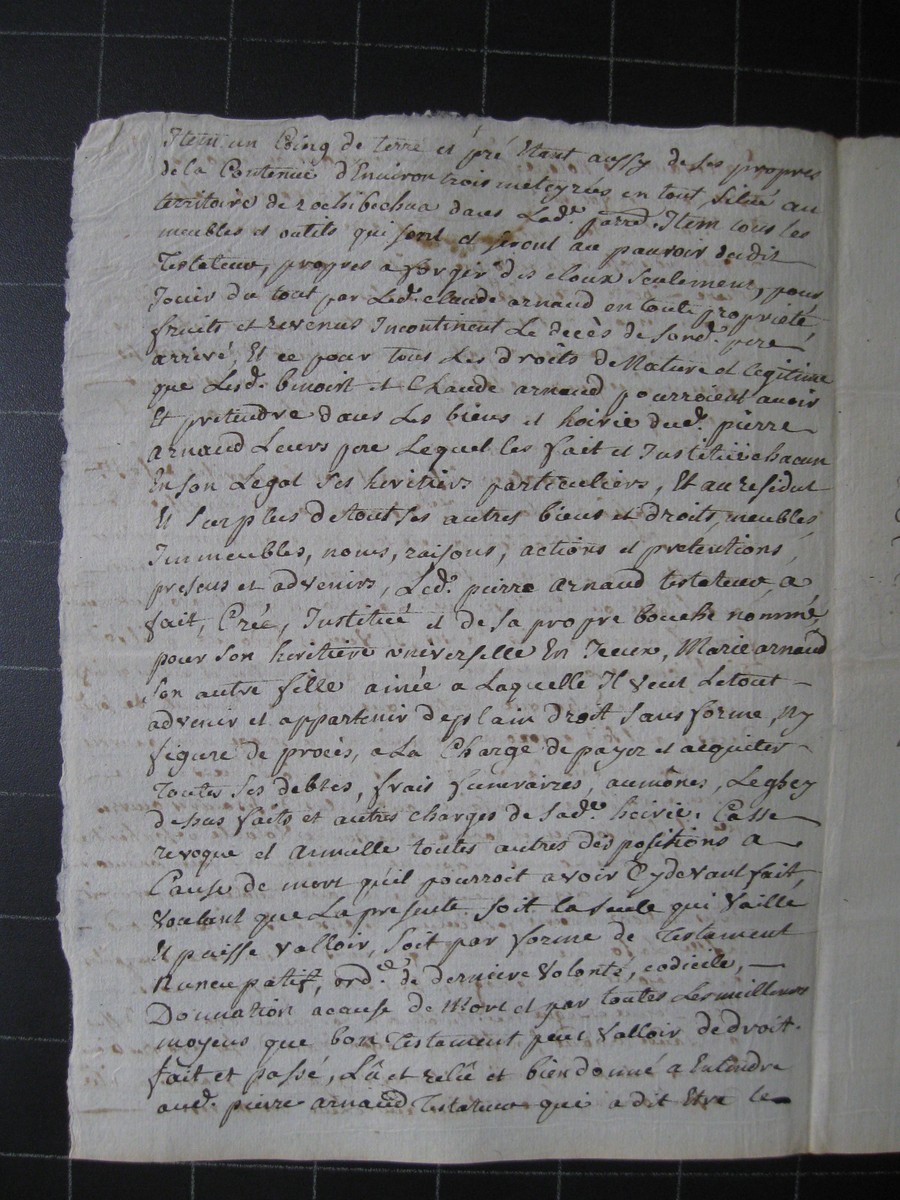 Item un Coing de terre et pré Etant aussy de ses propres
de la Contenüe d'Environ trois meteyrées en tout, situé au
territoire de rochibechua dans Led.^e parre^d. Item tous les
meubles et outils qui sont et seront au pauvoir dudit
Testateur, propres a forger des cloux seulement, pour
Jouir du tout par Led.^t claude arnaud en toute propriété
fruits et revenus Incontinent Le decès de sond.^t pere
arrivé, Et ce pour tous Les droits de Nature et Legitime
que Lesd.^s benoist et Claude arnaud pourroient avoir
Et pretendre dans Les biens et hoirie dud.^t pierre
arnaud Leurs pere Lequel les fait et Institüe chacun
En son Legat ses heritiers particuliers, Et au residut
Et surplus de tout ses autres biens et droits, meubles
Immeubles, noms, raisons, actions et pretentions,
presens et advenirs, Led.^t pierre arnaud testateur a
fait, Créé, Institüé et de sa propre bouche nommé,
pour son heritiere universelle En Iceux, Marie arnaud
son autre fille ainée a Laquelle Il veut Le tout
advenir et appartenir de plain droit sans forme, ny
figure de procès, a La Charge de payer et acquitter
Toutes ses debtes, frais funeraires, aumônes, Leg hey
dessus faits et autres charges de sad.^e hoirie. Casse
revoque et annulle toutes autres dispositions a
Cause de mort qu'il pourroit avoir Cy devant fait,
voulant que La presente soit la seule qui vaille
Et puisse valloir, soit par forme de Testament
Nuncupatif, ord.^ce de derniere volonté, codicile,
Donnation a cause de Mort et par toutes Les meilleurs
moyens que bon Testament peut valloir de droit.
fait et passé, Lû et relû et bien donné a Entendre
aud.^t pierre arnaud Testateur qui a dit Etre le